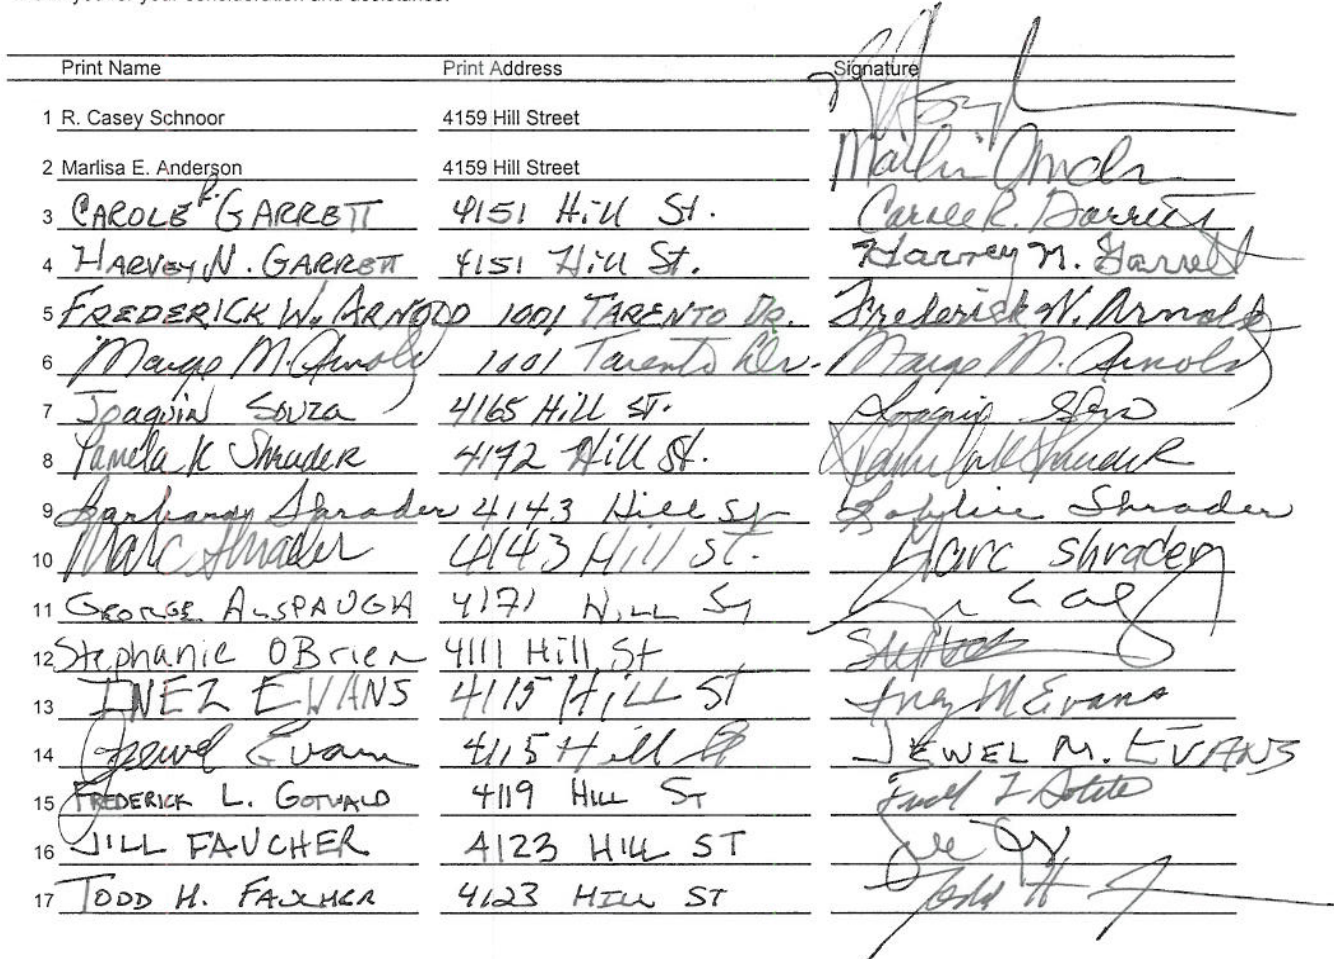 you for your consideration and assistance.
Print Name Print Address Signature
1 R. Casey Schnoor 4159 Hill Street
2 Marlisa E. Anderson 4159 Hill Street
3 CAROLE R. GARRETT 4151 Hill St. Carole R. Garrett
4 HARVEY N. GARRETT 4151 Hill St. Harvey N. Garrett
5 FREDERICK W. ARNOLD 1001 TARENTO DR. Frederick W. Arnold
6 Margo M. Arnold 1001 Tarento Dr. Margo M. Arnold
7 Joaquin Souza 4165 Hill ST. Joaquin
8 Pamela K Shrader 4172 Hill St. Shrader
9 Shrader 4143 Hill St Shrader
10 Marc Shrader 4143 Hill St. Marc Shrader
11 GEORGE ALSPAUGH 4171 HILL ST
12 Stephanie OBrien 4111 Hill St
13 INEZ EVANS 4115 HILL ST Inez M Evans
14 Jewel Evans 4115 Hill St JEWEL M. EVANS
15 FREDERICK L. GOTVALD 4119 HILL ST
16 JILL FAUCHER 4123 HILL ST
17 TODD H. FAUCHER 4123 HILL ST Todd H